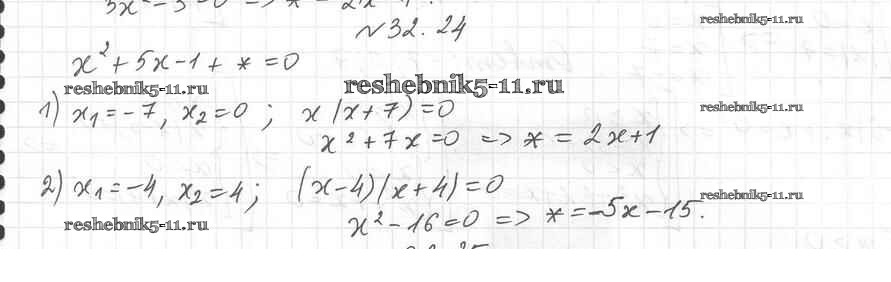 3x² - 3 = 0 =>
№32.24
reshebnik5-11.ru
x² + 5x - 1 + * = 0
reshebnik5-11.ru
reshebnik5-11.ru
1) x₁ = -7, x₂ = 0 ; x(x+7) = 0
reshebnik5-11.ru
x² + 7x = 0 => * = 2x+1
2) x₁ = -4, x₂ = 4 ; (x-4)(x+4) = 0
reshebnik5-11.ru
x² - 16 = 0 => * = -5x - 15.
reshebnik5-11.ru